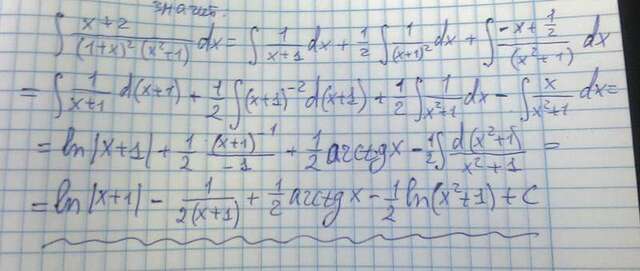 значит:
∫ (x+2)/((1+x)²(x²+1)) dx = ∫ 1/(x+1) dx + 1/2 ∫ 1/(x+1)² dx + ∫ (-x+1/2)/(x²+1) dx
= ∫ 1/(x+1) d(x+1) + 1/2 ∫ (x+1)⁻² d(x+1) + 1/2 ∫ 1/(x²+1) dx - ∫ x/(x²+1) dx =
= ln|x+1| + 1/2 · (x+1)⁻¹/(-1) + 1/2 arcctg x - 1/2 ∫ d(x²+1)/(x²+1) =
= ln|x+1| - 1/(2(x+1)) + 1/2 arcctg x - 1/2 ln(x²+1) + C